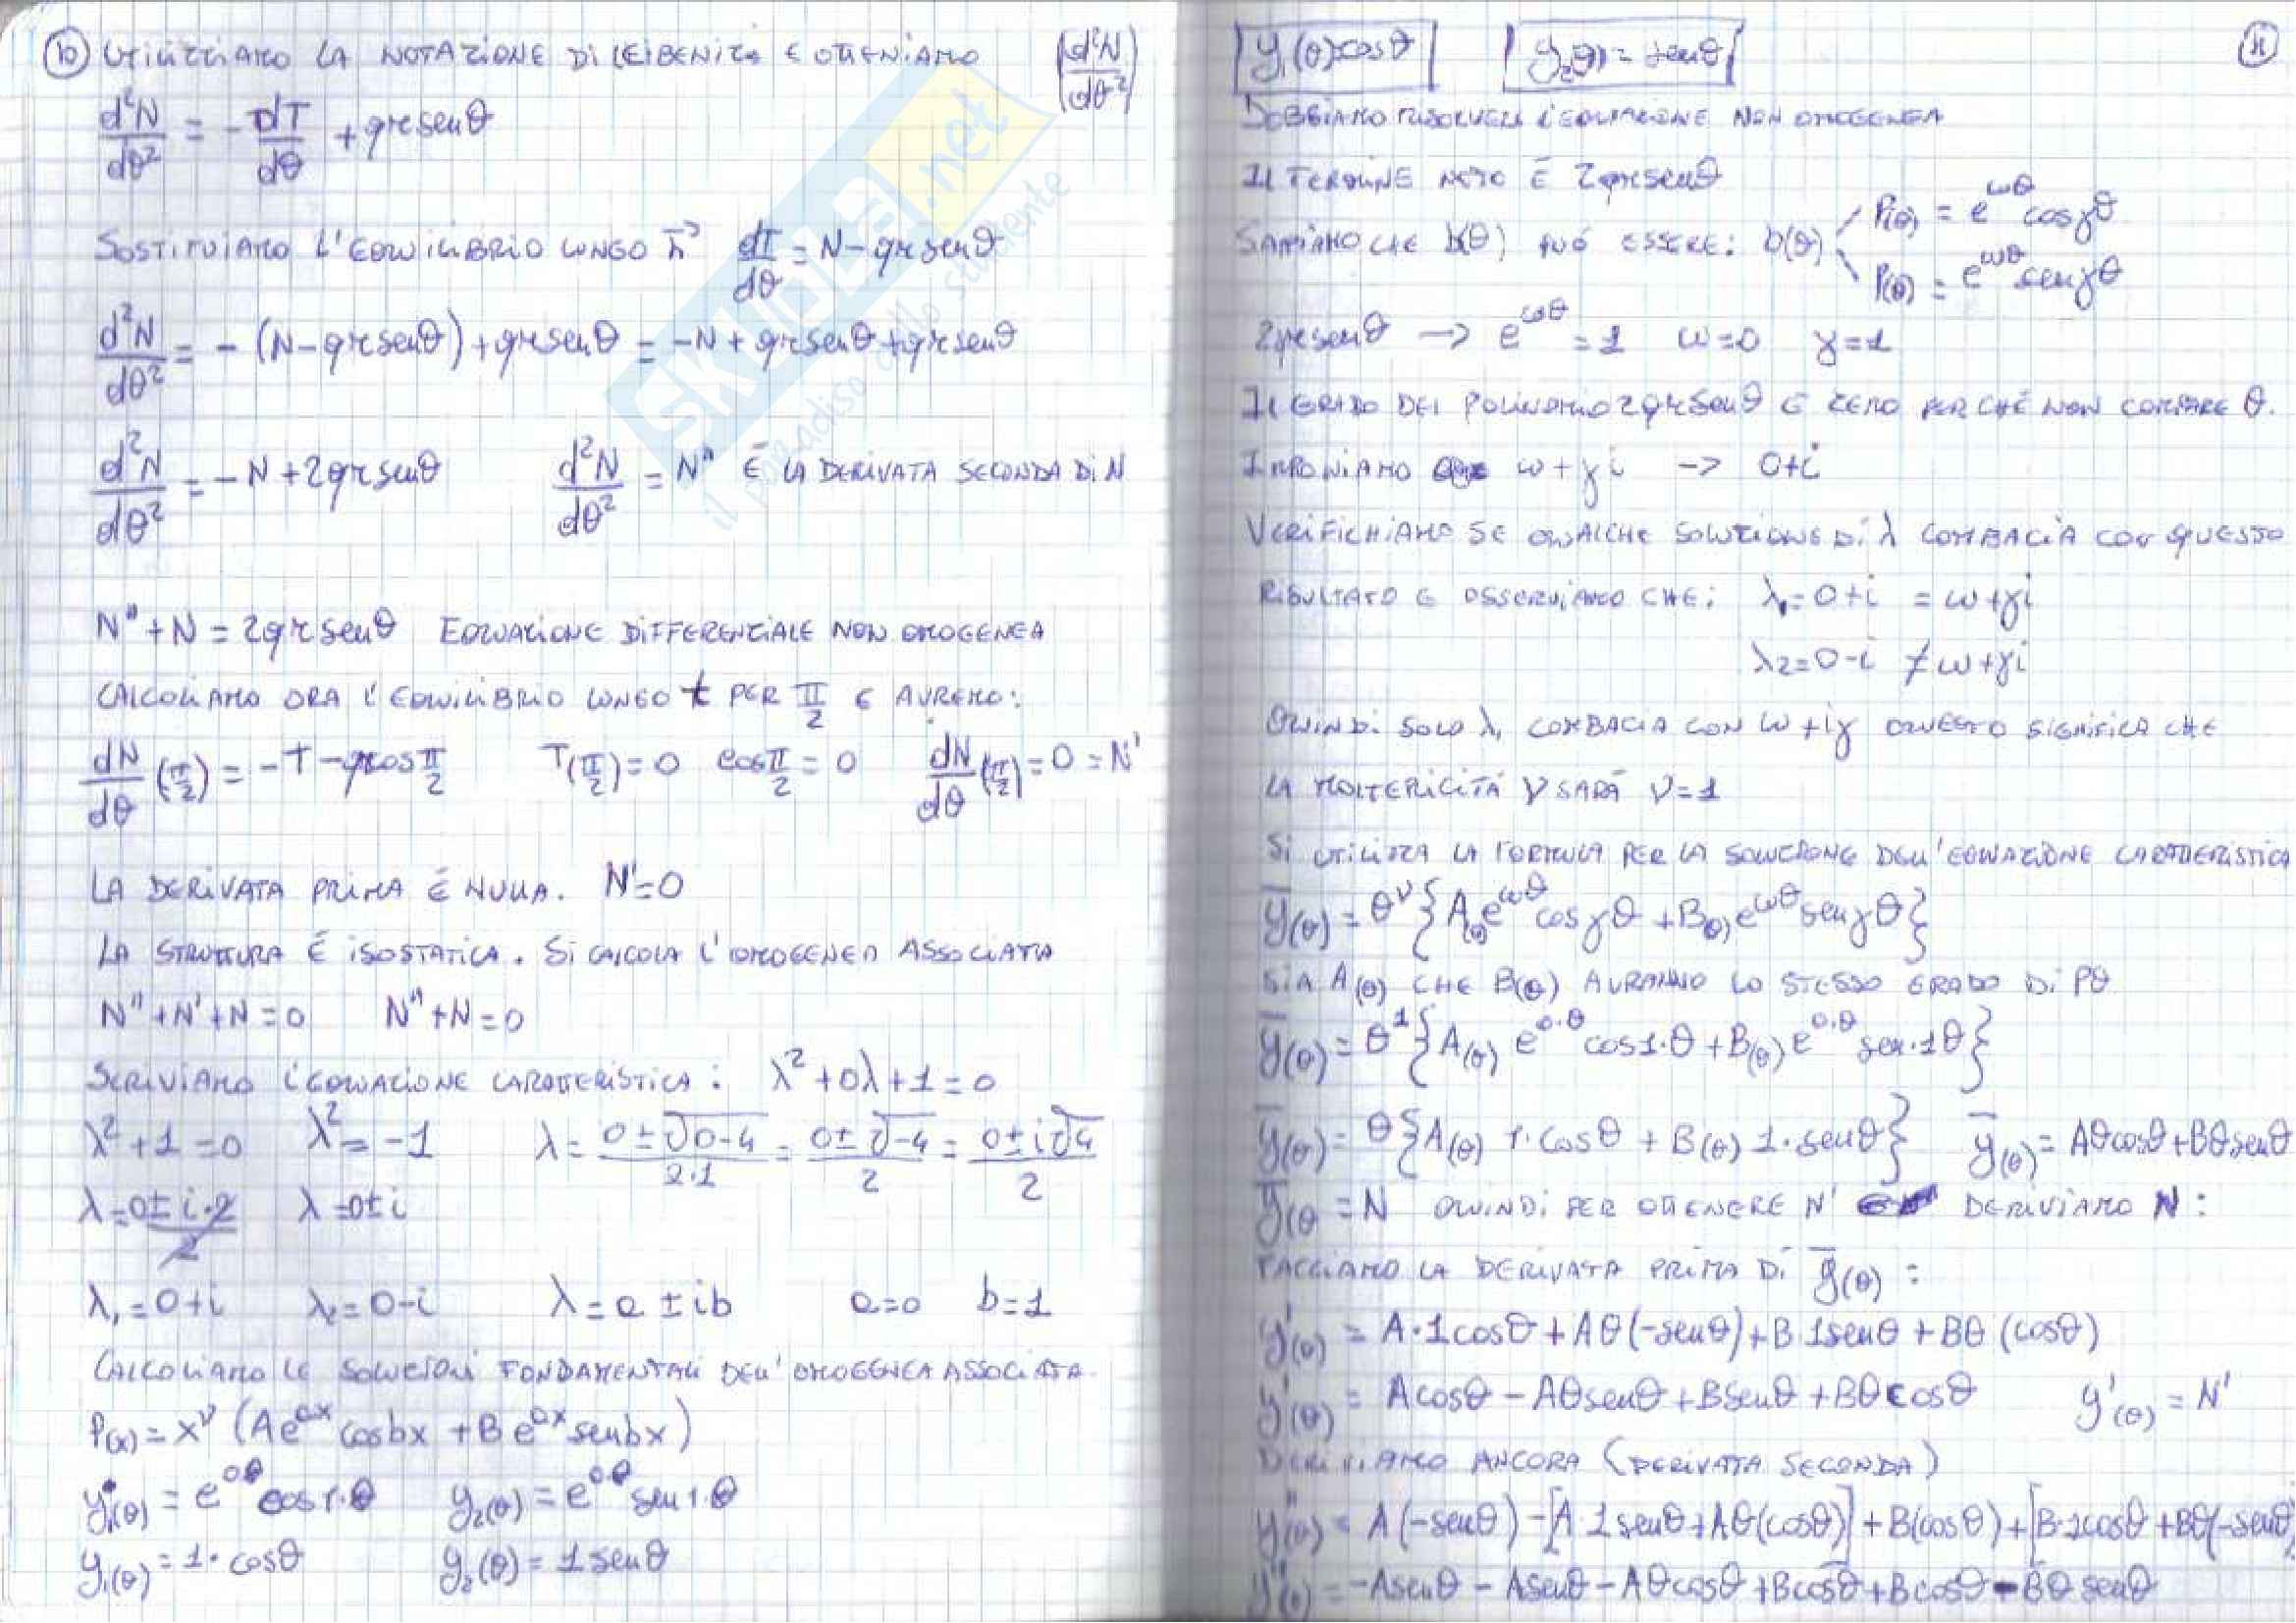 10 UTILIZZIAMO LA NOTAZIONE DI LEIBENITZ E OTTENIAMO (d²N/dθ²)
d²N/dθ² = -dT/dθ + qr senθ
SOSTITUIAMO L'EQUILIBRIO LUNGO n⃗ dT/dθ = N - qr senθ
d²N/dθ² = -(N - qr senθ) + qr senθ = -N + qr senθ + qr senθ
d²N/dθ² = -N + 2qr senθ d²N/dθ² = N" È LA DERIVATA SECONDA DI N
N" + N = 2qr senθ EQUAZIONE DIFFERENZIALE NON OMOGENEA
CALCOLIAMO ORA L'EQUILIBRIO LUNGO t PER π/2 E AVREMO:
dN/dθ (π/2) = -T - qr cos π/2 T(π/2) = 0 cos π/2 = 0 dN/dθ (π/2) = 0 = N'
LA DERIVATA PRIMA È NULLA. N' = 0
LA STRUTTURA È ISOSTATICA. SI CALCOLA L'OMOGENEA ASSOCIATA
N" + N' + N = 0 N" + N = 0
SCRIVIAMO L'EQUAZIONE CARATTERISTICA: λ² + 0λ + 1 = 0
λ² + 1 = 0 λ² = -1 λ = (0 ± √(0-4))/(2·1) = (0 ± √-4)/2 = (0 ± i√4)/2
λ = (0 ± i·2)/2 λ = 0 ± i
λ₁ = 0+i λ₂ = 0-i λ = a ± ib a=0 b=1
CALCOLIAMO LE SOLUZIONI FONDAMENTALI DELL'OMOGENEA ASSOCIATA
P(x) = x^ν (A e^ax cos bx + B e^ax sen bx)
y₁(θ) = e^0θ cos 1·θ y₂(θ) = e^0θ sen 1·θ
y₁(θ) = 1· cosθ y₂(θ) = 1 senθ
y₁(θ) = cosθ y₂(θ) = senθ 11
DOBBIAMO RISOLVERE L'EQUAZIONE NON OMOGENEA
IL TERMINE NOTO È 2qr senθ
SAPPIAMO CHE b(θ) PUÓ ESSERE: b(θ) P(θ) = e^ωθ cos γθ
P(θ) = e^ωθ sen γθ
2qr senθ -> e^ωθ = 1 ω=0 γ=1
IL GRADO DEL POLINOMIO 2qr senθ È ZERO PERCHÉ NON COMPARE θ.
IMPONIAMO ω + γi -> 0+i
VERIFICHIAMO SE QUALCHE SOLUZIONE DI λ COMBACIA CON QUESTO
RISULTATO E OSSERVIAMO CHE: λ₁ = 0+i = ω+γi
λ₂ = 0-i ≠ ω+γi
QUINDI SOLO λ₁ COMBACIA CON ω+iγ QUESTO SIGNIFICA CHE
LA MOLTEPLICITÁ ν SARÁ ν=1
SI UTILIZZA LA FORMULA PER LA SOLUZIONE DELL'EQUAZIONE CARATTERISTICA
ȳ(θ) = θ^ν {A(θ) e^ωθ cos γθ + B(θ) e^ωθ sen γθ}
SIA A(θ) CHE B(θ) AVRANNO LO STESSO GRADO DI Pθ
ȳ(θ) = θ¹ {A(θ) e^0·θ cos 1·θ + B(θ) e^0·θ sen·1θ}
ȳ(θ) = θ {A(θ) 1·cosθ + B(θ) 1·senθ} ȳ(θ) = Aθcosθ + Bθsenθ
ȳ(θ = N QUINDI PER OTTENERE N' DERIVIAMO N:
FACCIAMO LA DERIVATA PRIMA DI ȳ(θ):
y'(θ) = A·1cosθ + Aθ(-senθ) + B 1senθ + Bθ (cosθ)
y'(θ) = Acosθ - Aθsenθ + Bsenθ + Bθcosθ y'(θ) = N'
DERIVIAMO ANCORA (DERIVATA SECONDA)
y"(θ) = A(-senθ) - [A·1senθ + Aθ(cosθ)] + B(cosθ) + [B·1cosθ + Bθ(-senθ)
y"(θ) = -Asenθ - Asenθ - Aθcosθ + Bcosθ + Bcosθ - Bθ senθ
SKUOLA.net
il paradiso dello studente